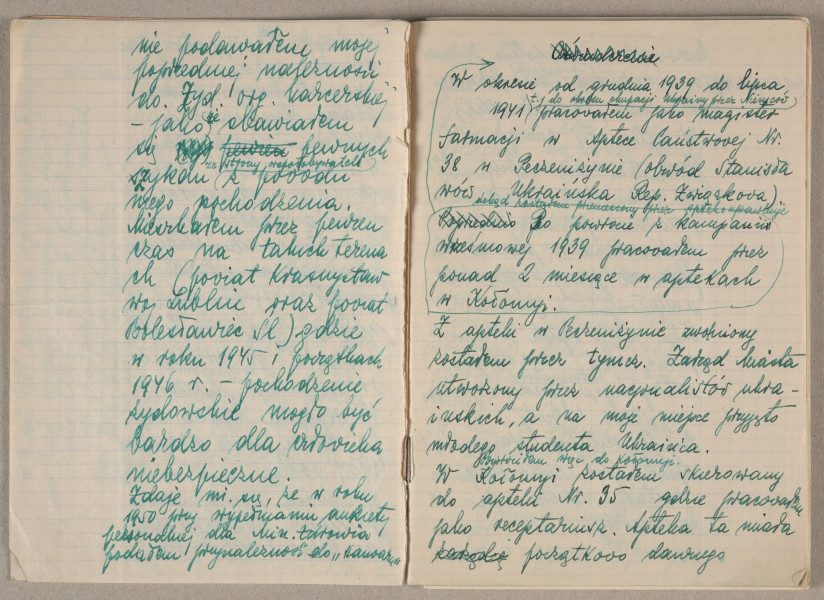 nie podawałem mojej
poprzedniej należności
do. Żyd. org. harcerskiej
– jako że obawiałem
się pewnych
ze strony współobywateli
szykan z powodu
mego pochodzenia.
Mieszkałem przez pewien
czas na takich terena
ch (powiat Krasnystaw
woj. Lublin oraz powiat
Bolesławiec Śl.) gdzie
w roku 1945 i początkach
1946 r. – pochodzenie
żydowskie mogło być
bardzo dla człowieka
niebezpieczne.
Zdaje mi się, że w roku
1950 przy wypełnianiu ankiety
personalnej dla Min. Zdrowia
podałem przynależność do „Hanoar"
Oświadczenie
W okresie od grudnia 1939 do lipca
1941 (t.j. do okresu okupacji Ukrainy przez Niemców)
pracowałem jako magister
farmacji w Aptece Państwowej Nr.
38 w Peczeniżynie (obwód Stanisła
wów, Ukraińska Rep. Związkowa)
dokąd zostałem przeniesiony przez
Poprzednio Po powrocie z kampanii
wrześniowej 1939 pracowałem przez
ponad 2 miesiące w aptekach
w Kołomyji.
Z apteki w Peczeniżynie zwolniony
zostałem przez tymcz. Zarząd Miasta
utworzony przez nacjonalistów ukra-
ińskich, a na moje miejsce przyjęto
młodego studenta Ukraińca.
Powróciłam więc do Kołomyji.
W Kołomyji zostałem skierowany
do apteki Nr. 35 gdzie pracowałem
jako receptariusz. Apteka ta miała
początkowo dawnego